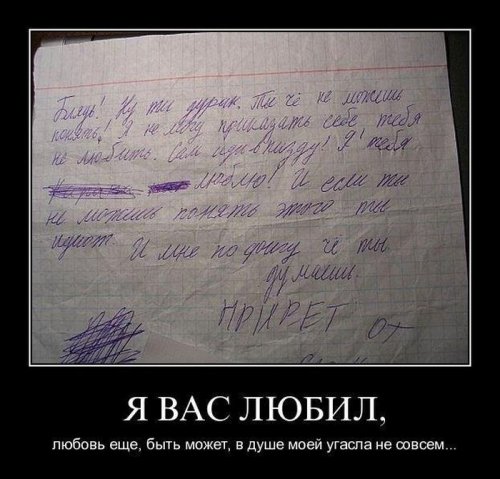 Блядь! Ну ты дурик. Ты че не можешь
понять! Я не могу приказать себе тебя
не любить. Сам иди в пизду! Я тебя
люблю! И если ты
не можешь понять этого ты
идиот. И мне по фигу че ты
думаешь.
ПРИВЕТ От
Я ВАС ЛЮБИЛ,
любовь еще, быть может, в душе моей угасла не совсем...